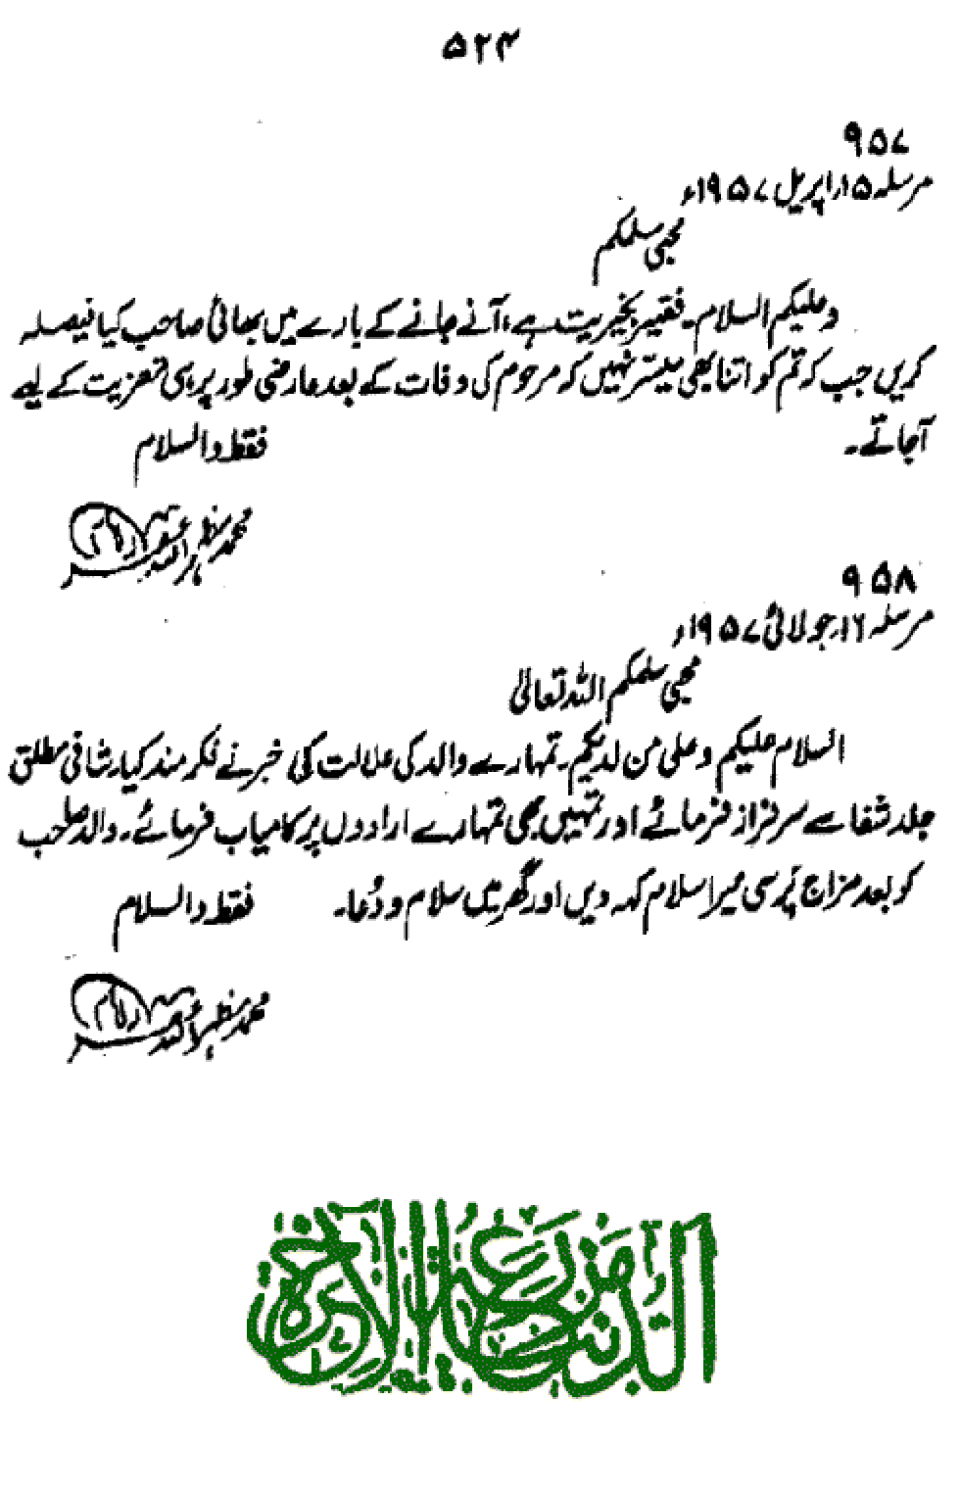 ۵۲۴
۹۵۷
مرسلہ ۱۵؍اپریل ۱۹۵۷ء
محبی سلمکم
وعلیکم السلام۔ فقیر بخیریت ہے، آنے جانے کے بارے میں بھائی صاحب کیا فیصلہ
کریں جب کہ تم کو اتنا بھی میسّر نہیں کہ مرحوم کی وفات کے بعد عارضی طور پر ہی تعزیت کے لیے
آجاتے۔ فقط والسلام
محمد مظہر اللہ
۹۵۸
مرسلہ ۱۶؍جولائی ۱۹۵۷ء
محبی سلمکم اللہ تعالیٰ
السلام علیکم وعلی من لدیکم۔ تمہارے والد کی علالت کی خبر نے فکر مند کیا، شافی مطلق
جلد شفا سے سرفراز فرمائے اور تمہیں بھی تمہارے ارادوں پر کامیاب فرمائے۔ والد صاحب
کو بعد مزاج پُرسی میرا سلام کہہ دیں اور گھر میں سلام و دُعا۔ فقط والسلام
محمد مظہر اللہ
الدنیا مزرعۃ الآخرۃ